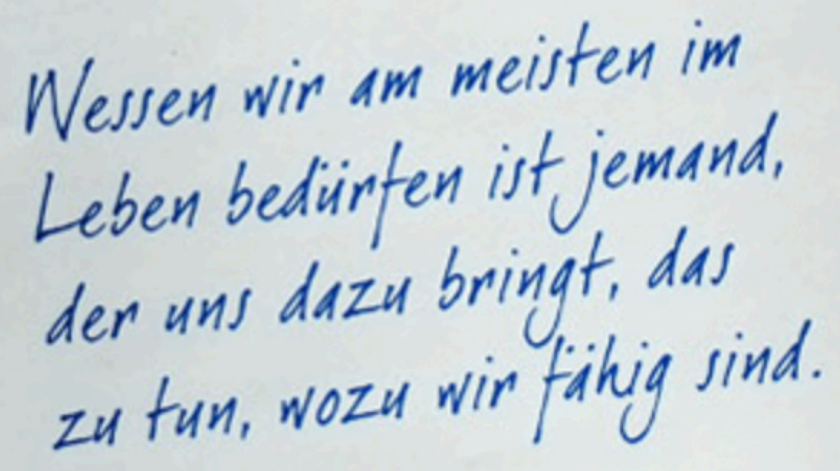 Wessen wir am meisten im
Leben bedürfen ist jemand,
der uns dazu bringt, das
zu tun, wozu wir fähig sind.